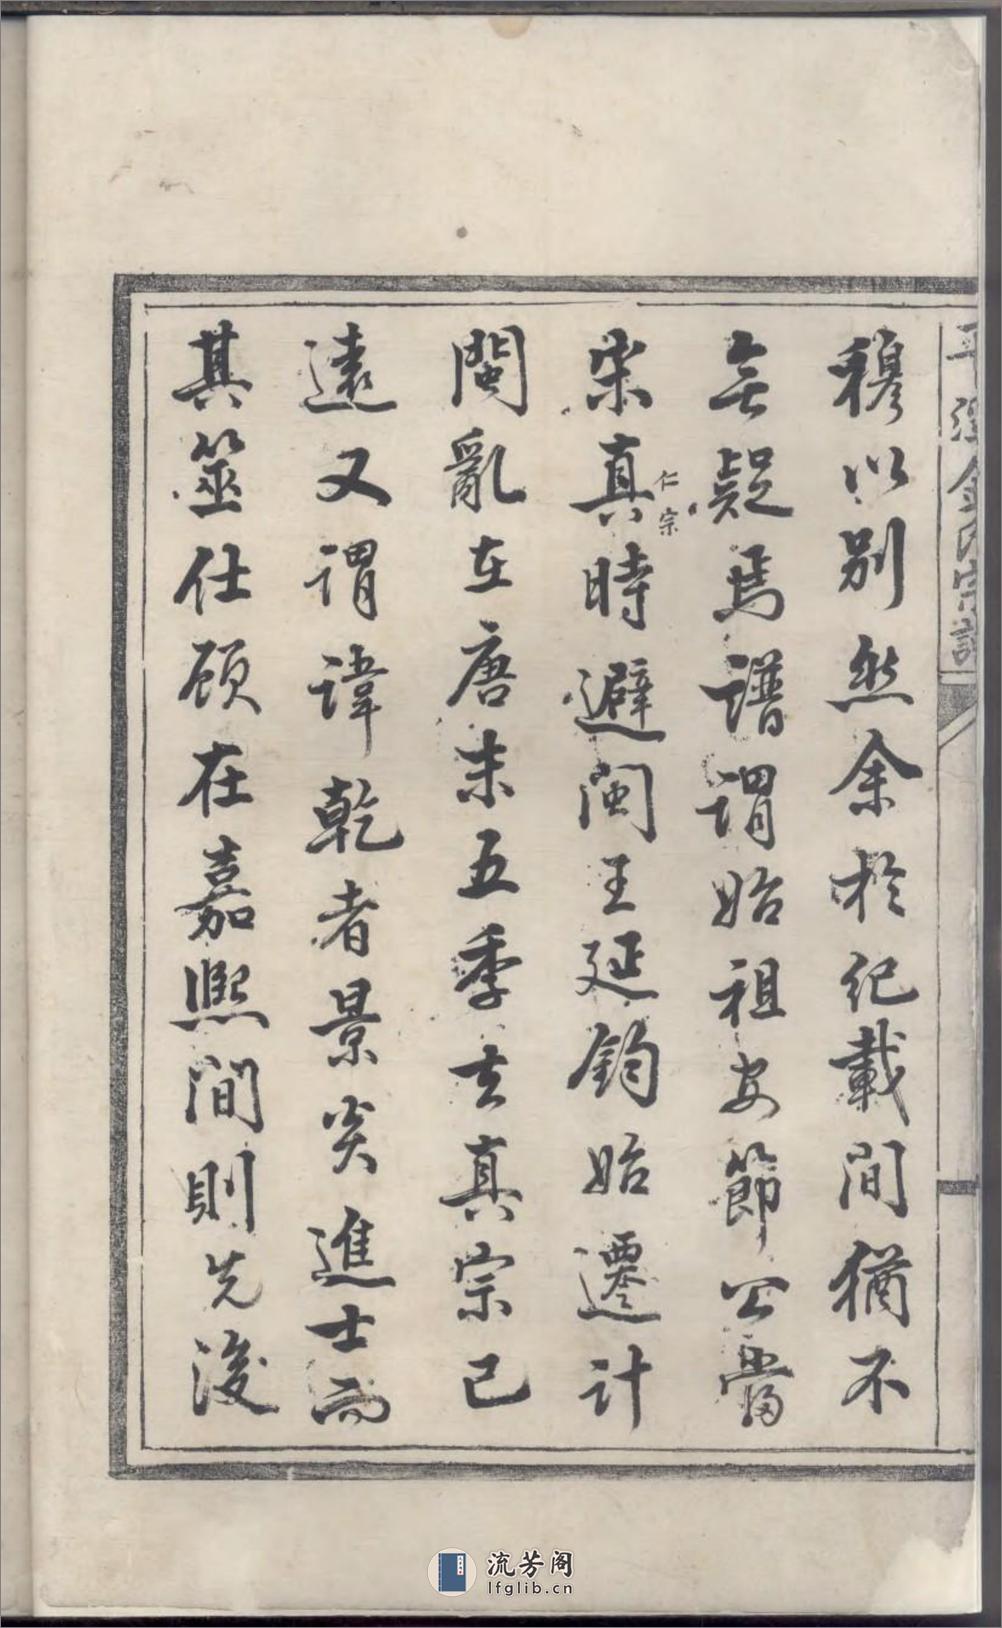 穆以別然余於紀載間猶不
無疑焉譜謂始祖安節公當
宋真仁宗時避閩王延鈞始遷計
閩亂在唐末五季去真宗已
遠又謂諱乾者景炎進士而
其筮仕顧在嘉熙間則先後
平 金氏宗譜
流芳阁
lfglib.cn